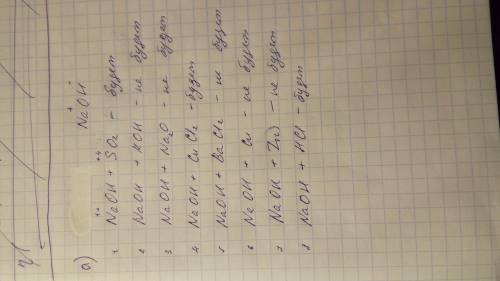 а) NaOH
1 NaOH + SO₂ - будет
2 NaOH + KOH - не будет
3 NaOH + Na₂O - не будет
4. NaOH + CuCl₂ - будет
5 NaOH + BaCl₂ - не будет
6 NaOH + Cu - не будет
7 NaOH + - не будет
8 NaOH + HCl - будет